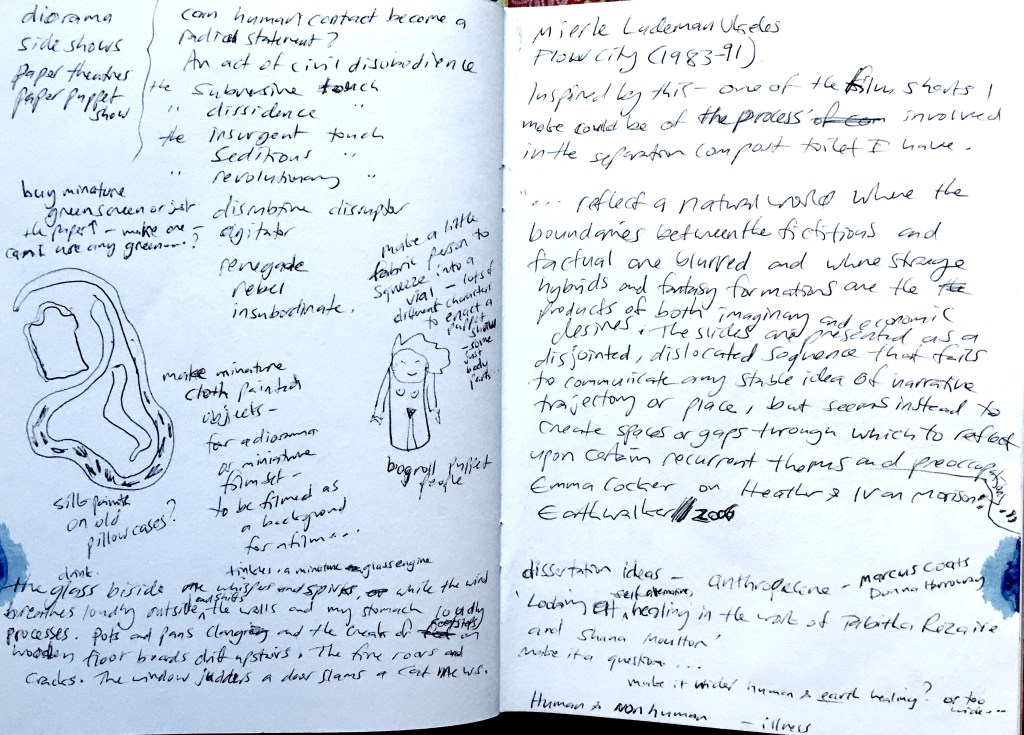 diorama
side shows
paper theatres
paper puppet
show
can human contact become a
radical statement?
An act of civil disobodience
the subversive touch
" dissidence "
the insurgent touch
seditious "
" revolutionary "
disrubtive disruptor
agitator
renegade
rebel
insubordinate.
buy minature
greenscreen or just
the paper? - make one -
can I use any green....?
make a little
fabric person to
squeeze into a
vial - lots of
different characters
to enact a
puppet
show
- some
just
body
parts.
make minature
cloth painted
objects -
for a diorama
or miniature
film set -
to be filmed as
a background
for a film...
bogroll puppet
people
silk paints
on old
pillow cases?
drink.
tinkles. a minature glass engine
the glass biside me whispers and spirts, while the wind
and shifts
breathes loudly outside, the walls and my stomach loudly
processes. Pots and pans clanging and the creak of footsteps on
wooden floor boards drift upstairs. The fire roars and
cracks. The window judders a door slams a cat mews.
Mierle Laderman Ukeles
Flow City (1983-91)
Inspired by this - one of the film shorts I
make could be of the process of com involved
in the separation compost toilet I have.
"... reflect a natural world where the
boundaries between the fictitious and
factual are blurred and where strange
hybrids and fantasy formations are the the
products of both imaginary and economic
desires. The slides are presented as a
disjointed, dislocated sequence that fails
to communicate any stable idea of narrative
trajectory or place, but seems instead to
create spaces or gaps through which to reflect
upon certain recurrent themes and preoccupations."
Emma Cocker on Heather & Ivan Morison:
Earthwalker 2006
dissertation ideas - anthropecene - Marcus Coats
Donna Harroway
self alternative,
'Looking at healing in the work of Tabitha Rezaire
and Shana Moulton'
make it a question...
make it wider human & earth healing? or too
wide...
Human & Non human - illness